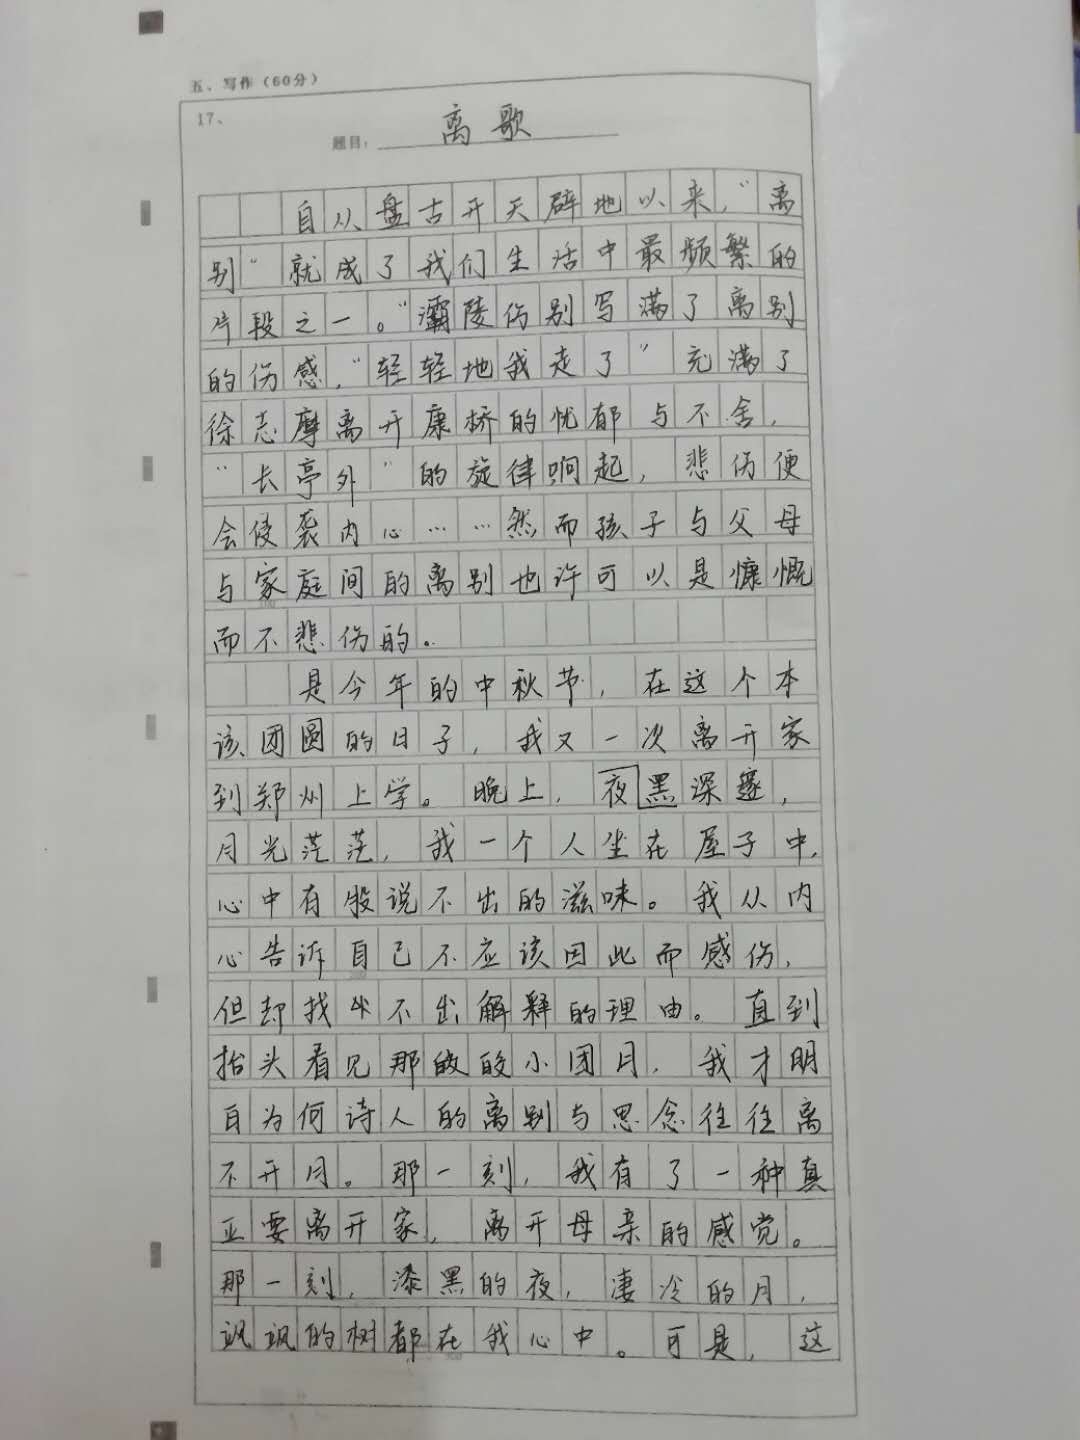 五、写作（60分）
17、
题目：离歌
自从盘古开天辟地以来，“离
别”就成了我们生活中最频繁的
片段之一。“灞陵伤别写满了离别
的伤感，“轻轻地我走了”充满了
徐志摩离开康桥的忧郁与不舍，
“长亭外”的旋律响起，悲伤便
会侵袭内心……然而孩子与父母
与家庭间的离别也许可以是慷慨
而不悲伤的。
是今年的中秋节，在这个本
该团圆的日子，我又一次离开家
到郑州上学。晚上，夜黑深邃，
月光茫茫，我一个人坐在屋子中，
心中有股说不出的滋味。我从内
心告诉自己不应该因此而感伤，
但却找不出解释的理由。直到
抬头看见那皎皎小团月，我才明
白为何诗人的离别与思念往往离
不开月。那一刻，我有了一种真
正要离开家，离开母亲的感觉。
那一刻，漆黑的夜，凄冷的月，
飒飒的树都在我心中。可是，这